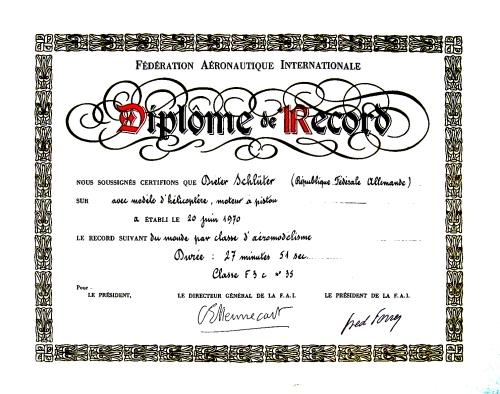 FÉDÉRATION AÉRONAUTIQUE INTERNATIONALE
Diplôme de Record
NOUS SOUSSIGNÉS CERTIFIONS QUE Dieter Schlüter (République Fédérale Allemande)
SUR avec modèle d'hélicoptère, moteur à piston
a ÉTABLI LE 20 juin 1970
LE RECORD SUIVANT du monde par classe d'aéromodélisme
Durée : 27 minutes 51 sec.
Classe F3c n° 35
Pour
LE PRÉSIDENT, LE DIRECTEUR GÉNÉRAL DE LA F.A.I. LE PRÉSIDENT DE LA F.A.I.